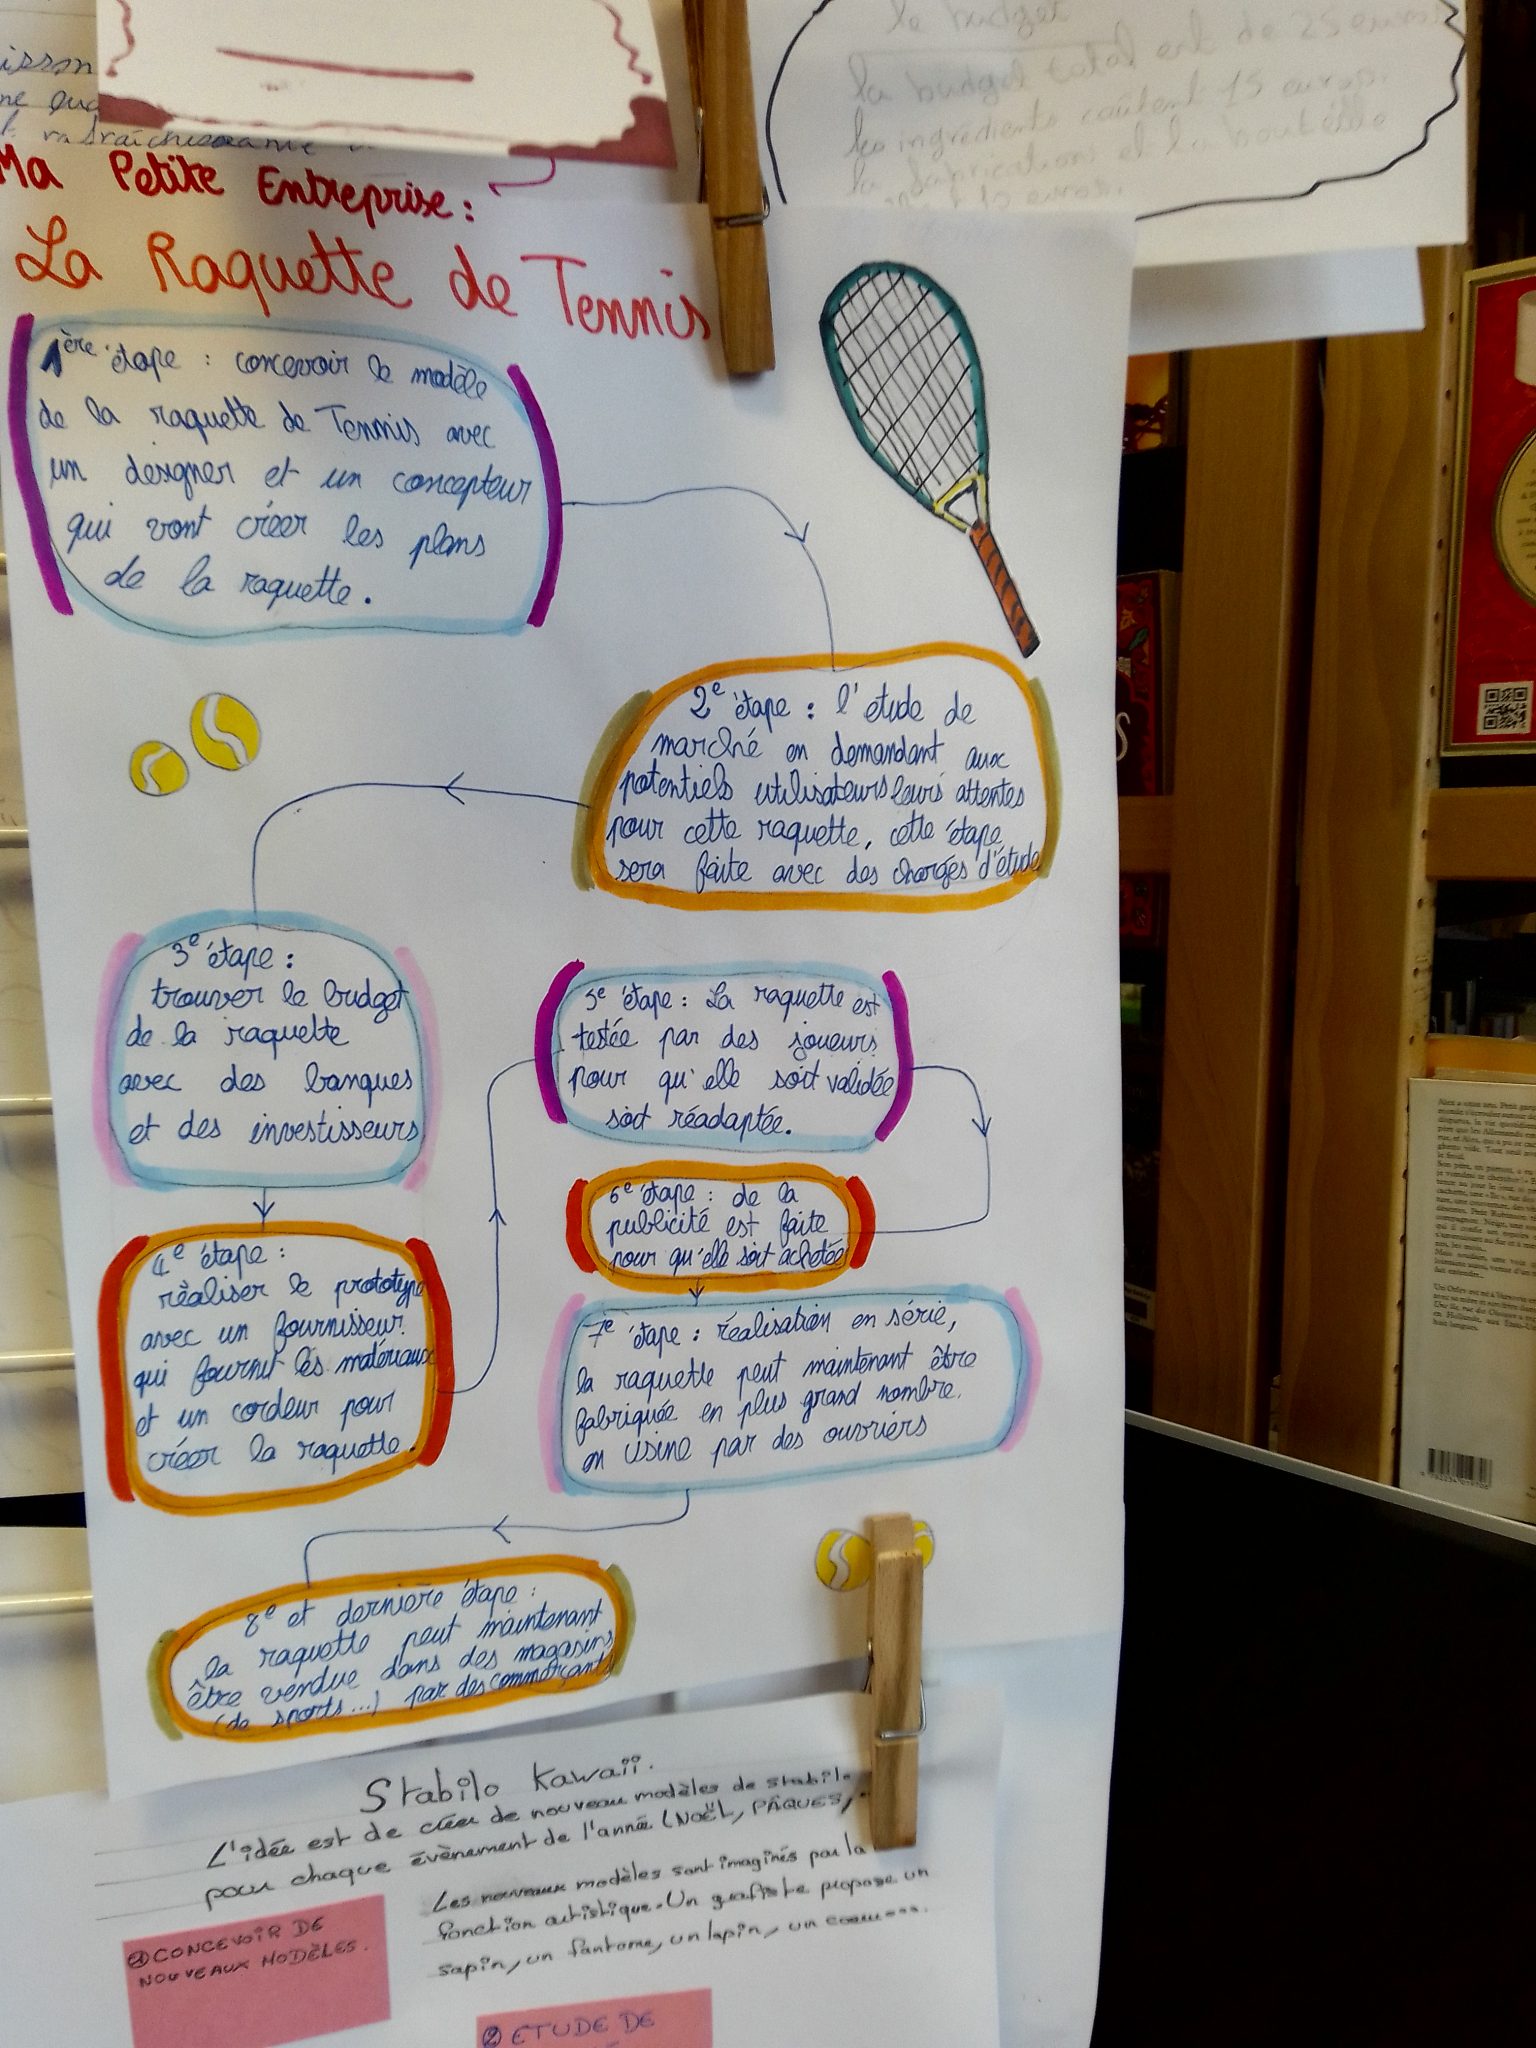 le budget
la budget total est de 25 euros
les ingrédients coûtent 15 euros.
la fabrication et la bouteille
rafraîchissante
Ma Petite Entreprise :
La Raquette de Tennis
1ère étape : concevoir le modèle
de la raquette de Tennis avec
un designer et un concepteur
qui vont créer les plans
de la raquette.
2e étape : l'étude de
marché en demandant aux
potentiels utilisateurs leurs attentes
pour cette raquette, cette étape
sera faite avec des chargés d'étude
3e étape :
trouver le budget
de la raquette
avec des banques
et des investisseurs
4e étape :
réaliser le prototype
avec un fournisseur
qui fournit les matériaux
et un cordeur pour
créer la raquette.
5e étape : La raquette est
testée par des joueurs
pour qu'elle soit validée
soit réadaptée.
6e étape : de la
publicité est faite
pour qu'elle soit achetée
7e étape : réalisation en série,
la raquette peut maintenant être
fabriquée en plus grand nombre.
en usine par des ouvriers
8e et dernière étape :
la raquette peut maintenant
être vendue dans des magasins
(de sports...) par des commerçants
Stabilo Kawaii.
L'idée est de créer de nouveau modèles de stabilo
pour chaque évènement de l'année (NOËL, PÂQUES,
Les nouveaux modèles sont imaginés par la
fonction artistique. Un grafiste propose un
sapin, un fantome, un lapin, un coeur....
① CONCEVOIR DE
NOUVEAUX MODÈLES.
② ETUDE DE